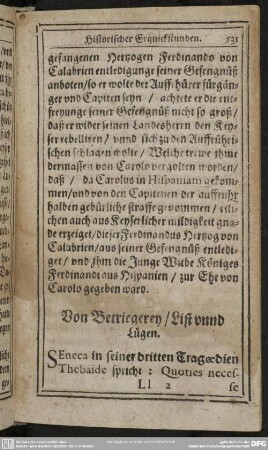 Historischer Erquickstunden. 531
gefangenen Hertzogen Ferdinando von
Calabrien entledigunge seiner Gefengnüß
anboten/so er wolte der Auffrhürer fürgän-
ger vnd Capiten seyn / achtete er die ent-
freyunge seiner Gefengnüß nicht so groß/
daß er wider seinen Landesherrn den Key-
ser rebelliren/ vnnd sich zu den Auffrührti-
schen schlagen wolte / Welche trewe ihme
dermassen von Carolo vergolten worden/
daß / da Carolus in Hispaniam gekom-
men/vnd von den Capitenen der auffruhr
halben gebürliche straffe genommen / etli-
chen auch aus Keyserlicher mildigkeit gna-
de erzeiget/dieser Ferdinandus Hertzog von
Calabrien/aus seiner Gefengnüß entledi-
get/ vnd jhm die Junge Witbe Königes
Ferdinandi aus Hispanien / zur Ehe von
Carolo gegeben ward.
Von Betriegerey / List vnnd
Lügen.
SEneca in seiner dritten Tragœdien
Thebaide spricht : Quoties neces-
Ll 2 se